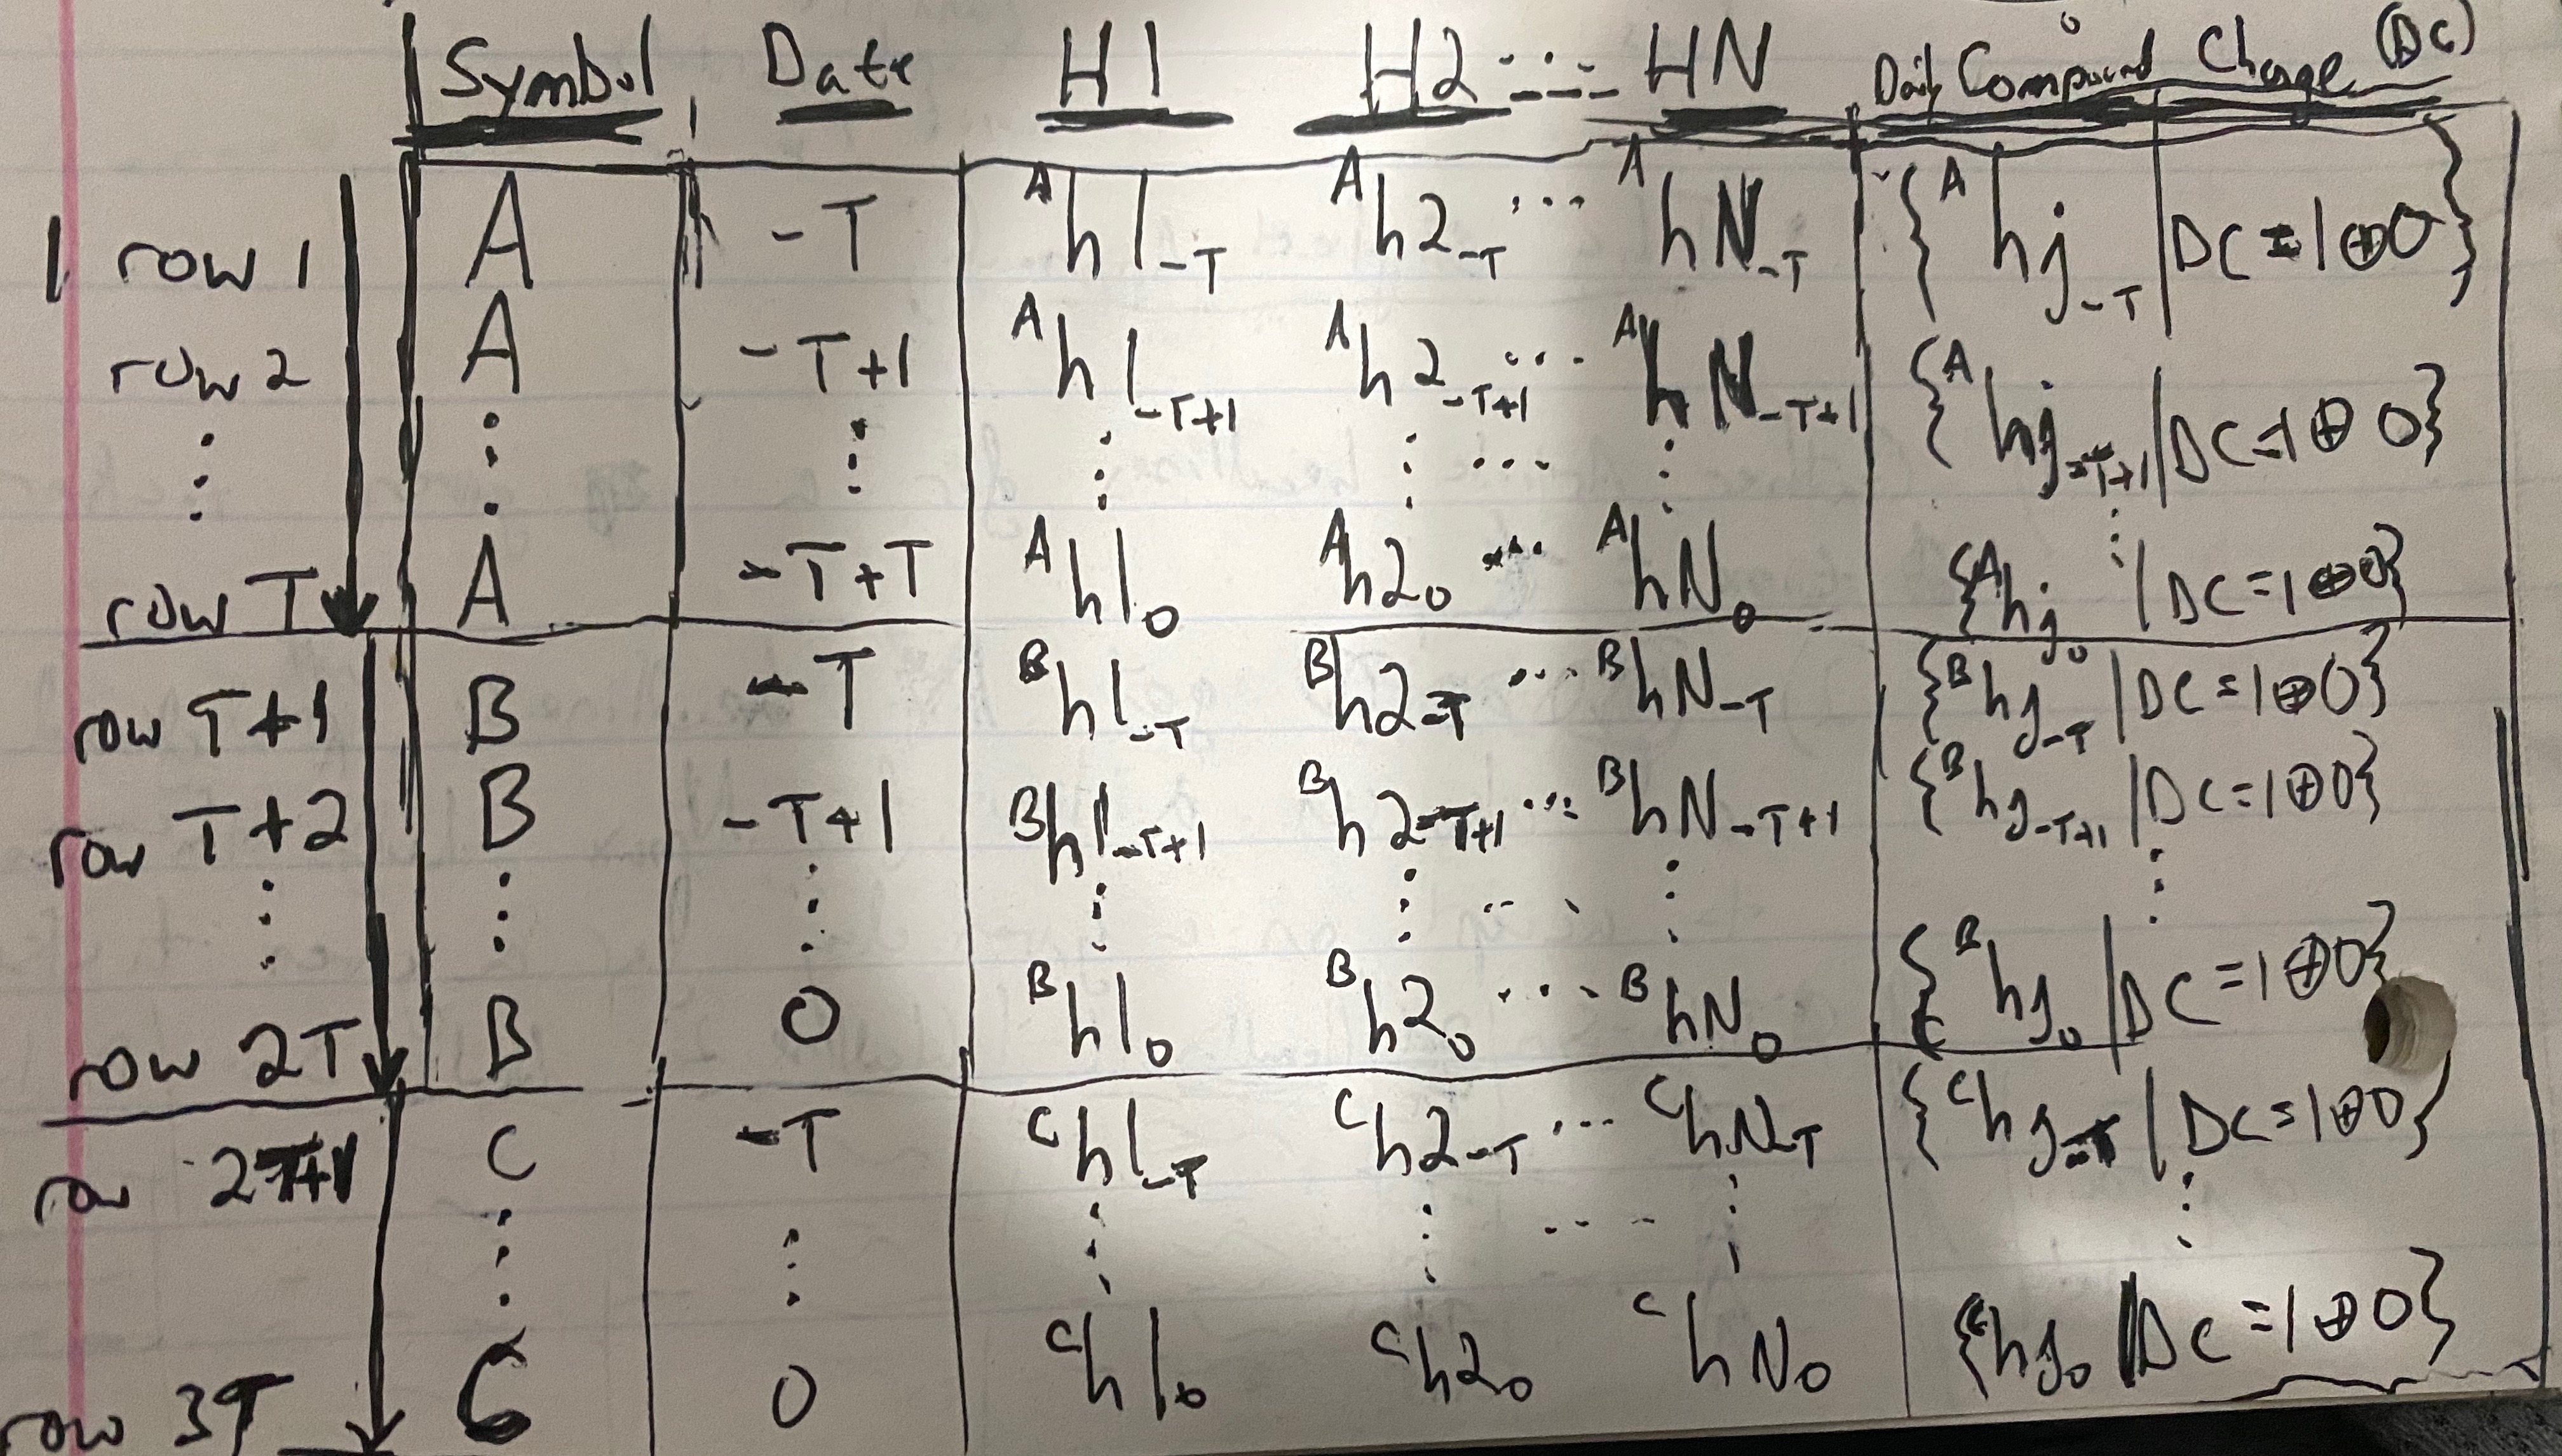 Symbol Date H1 H2 ... HN Daily Compound Change (DC)
row 1 A -T ᴬh1₋T ᴬh2₋T ... ᴬhN₋T {ᴬhj₋T | DC=1⊕0}
row 2 A -T+1 ᴬh1₋T+1 ᴬh2₋T+1 ... ᴬhN₋T+1 {ᴬhj₋T+1 | DC=1⊕0}
⋮ ⋮ ⋮ ⋮ ⋮ ... ⋮ ⋮
row T A -T+T ᴬh1₀ ᴬh2₀ ... ᴬhN₀ {ᴬhj₀ | DC=1⊕0}
row T+1 B -T ᴮh1₋T ᴮh2₋T ... ᴮhN₋T {ᴮhj₋T | DC=1⊕0}
row T+2 B -T+1 ᴮh1₋T+1 ᴮh2₋T+1 ... ᴮhN₋T+1 {ᴮhj₋T+1 | DC=1⊕0}
⋮ ⋮ ⋮ ⋮ ⋮ ... ⋮ ⋮
row 2T B 0 ᴮh1₀ ᴮh2₀ ... ᴮhN₀ {ᴮhj₀ | DC=1⊕0}
row 2T+1 C -T ᶜh1₋T ᶜh2₋T ... ᶜhN₋T {ᶜhj₋T | DC=1⊕0}
⋮ ⋮ ⋮ ⋮ ... ⋮ ⋮
row 3T C 0 ᶜh1₀ ᶜh2₀ ᶜhN₀ {ᶜhj₀ | DC=1⊕0}